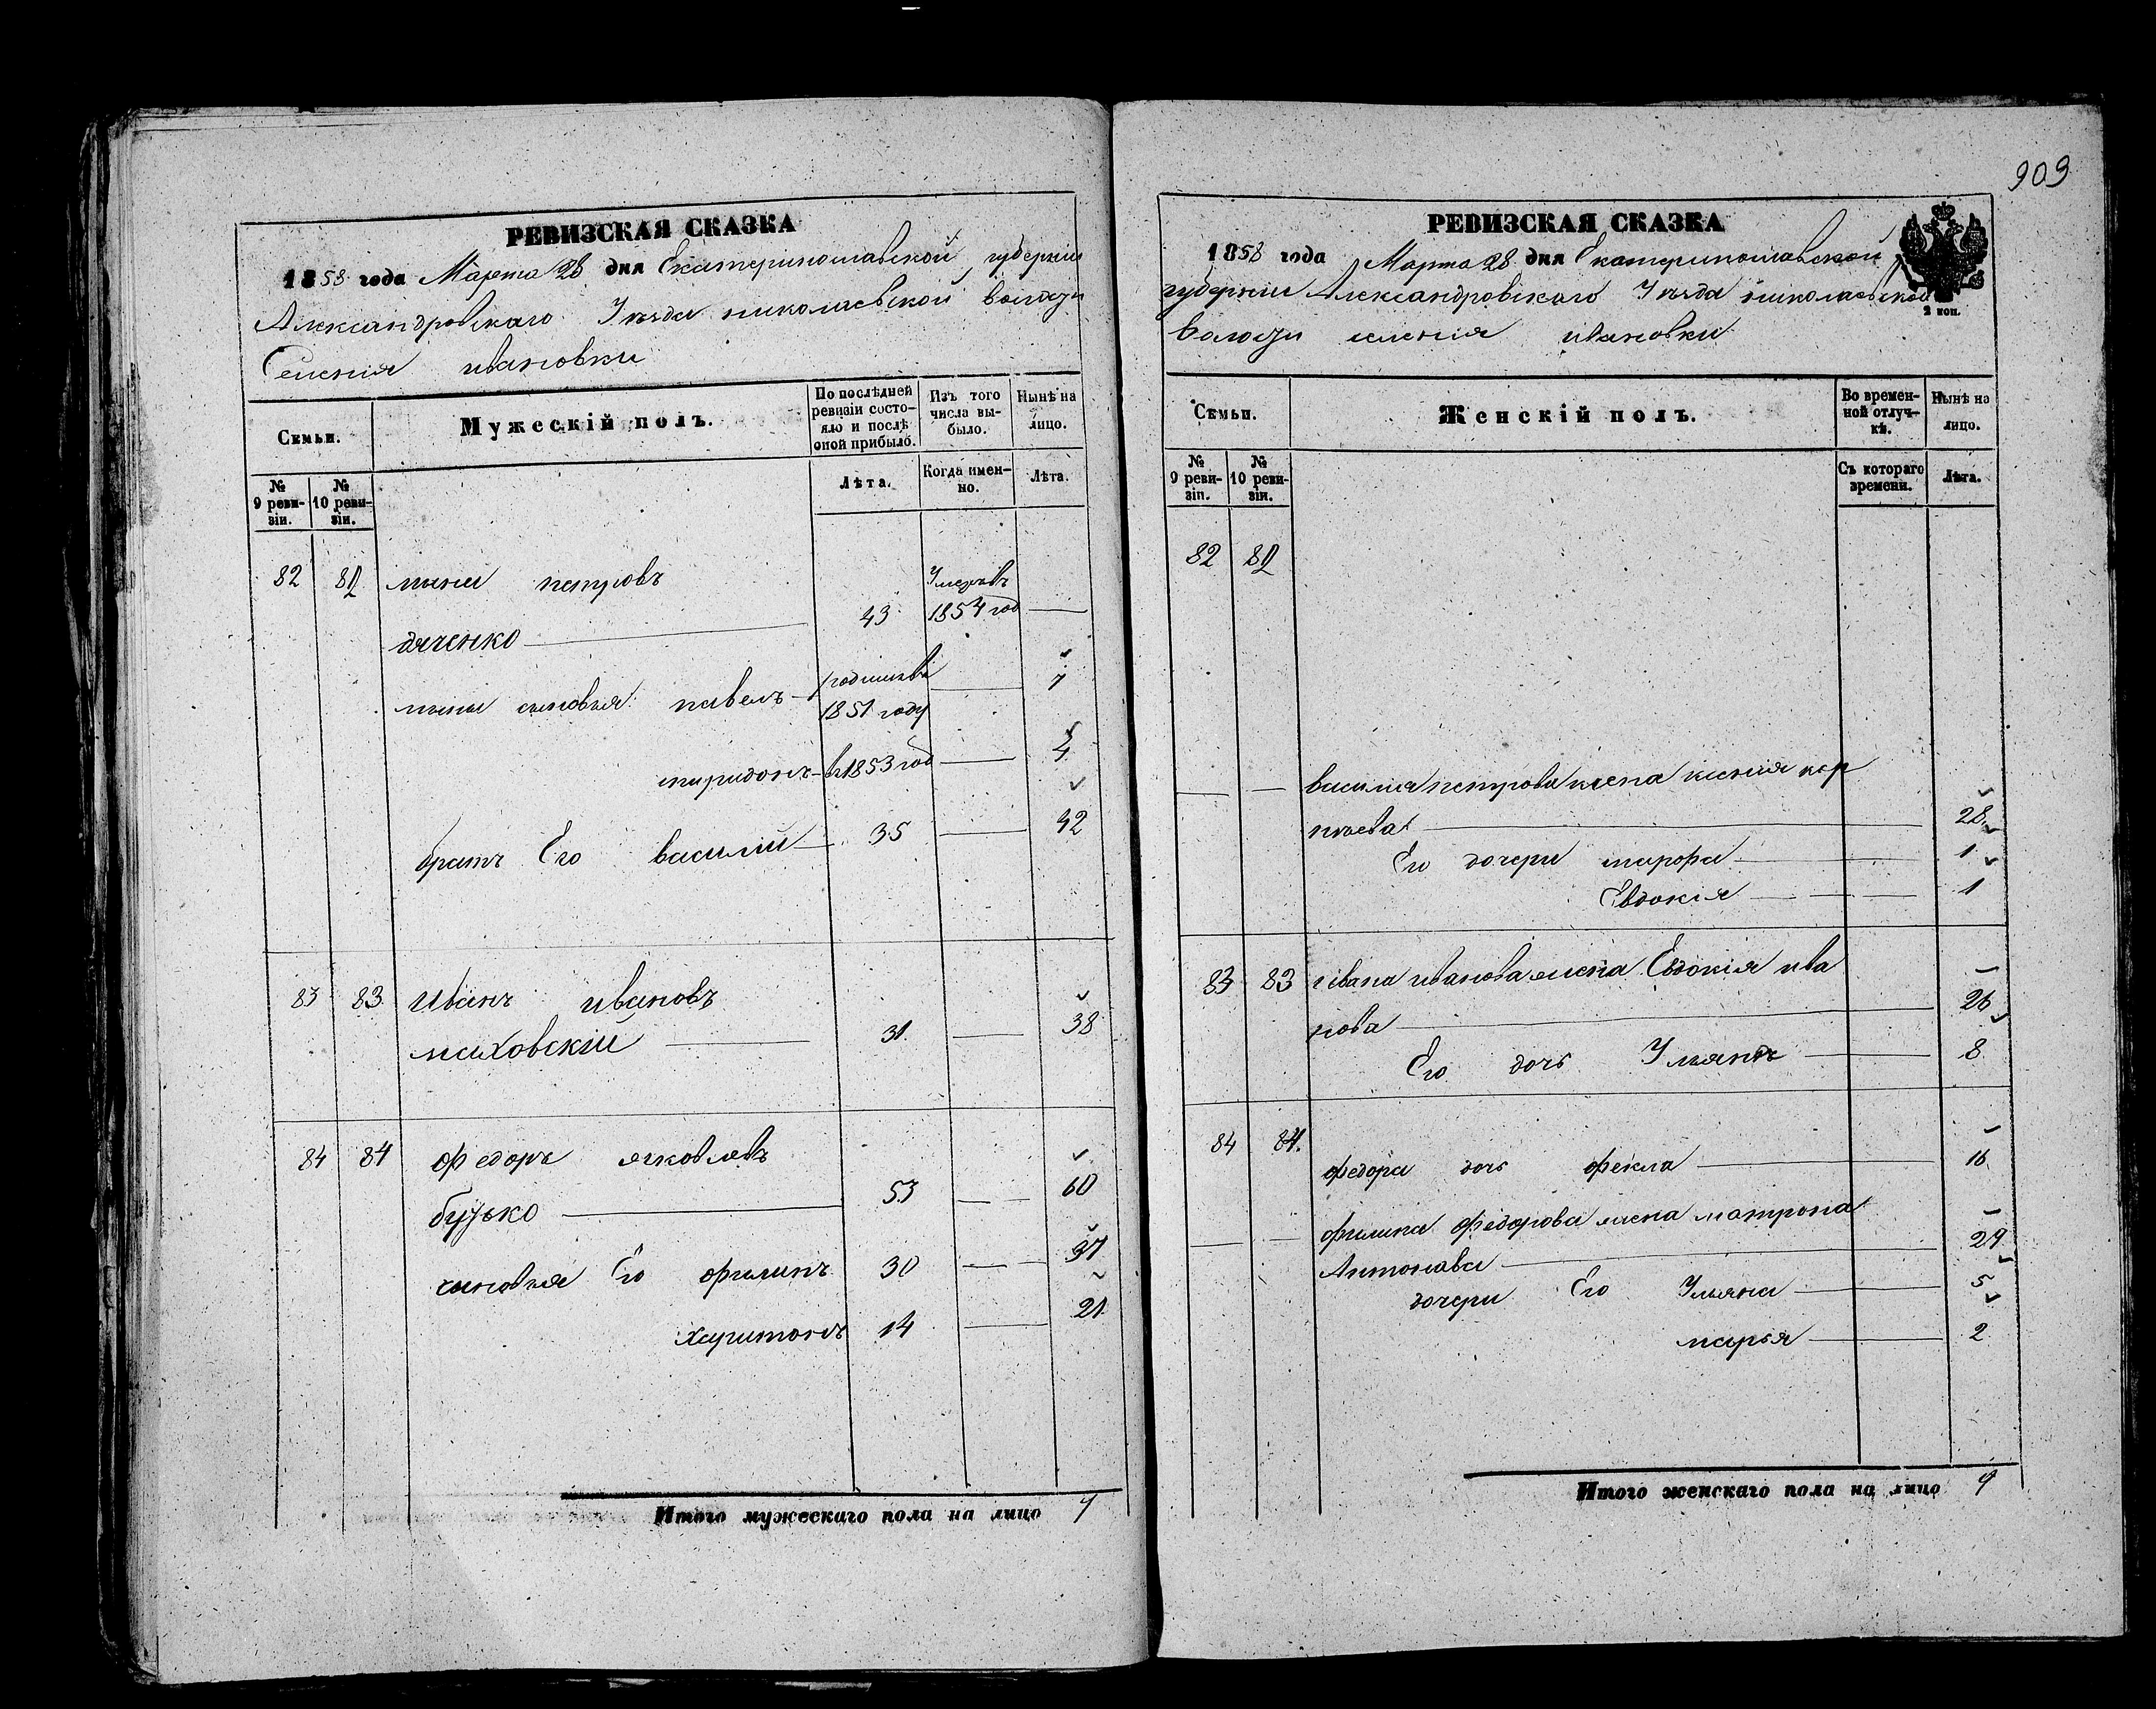 РЕВИЗСКАЯ СКАЗКА
1858 года Марта 28 дня Екатеринославской губернии
Александровскаго Уезда николаевской волости
Селения ивановки
Семьи.
Мужескій полъ.
По послѣдней ревизіи состояло и послѣ оной прибыло.
Изъ того числа выбыло.
Нынѣ на лицо.
№ 9 ревизіи.
№ 10 ревизіи.
Лѣта.
Когда именно.
Лѣта.
82 82 петровъ Умеръ въ
дяченко 43 1854 год
сыновья павелъ родился въ 1851 году 7
спиридонъ въ 1853 год 4
братъ Его василий 35 42
83 83 Иванъ ивановъ
31 38
84 84 федоръ яковлевъ
бузько 53 60
сыновья Его филипъ 30 37
харитонъ 14 21
Итого мужескаго пола на лицо 7
909
РЕВИЗСКАЯ СКАЗКА
1858 года Марта 28 дня Екатеринославской
губернии Александровскаго Уезда николаевской
2 коп.
Волости селения ивановки
Семьи.
Женскій полъ.
Во временной отлучкѣ.
Нынѣ на лицо.
№ 9 ревизіи.
№ 10 ревизіи.
Съ котораго времени.
Лѣта.
82 82
василия петрова жена ксения кор
неева 28
Его дочери марфа 1
Евдокия 1
83 83 ивана иванова жена Евдокия ива
нова 26
Его дочь Ульяна 8
84 84.
федора дочь фекла 16
филипа федорова жена матрона
Антонава 29
дочери Его Ульяна 5
марья 2
Итого женскаго пола на лицо 9